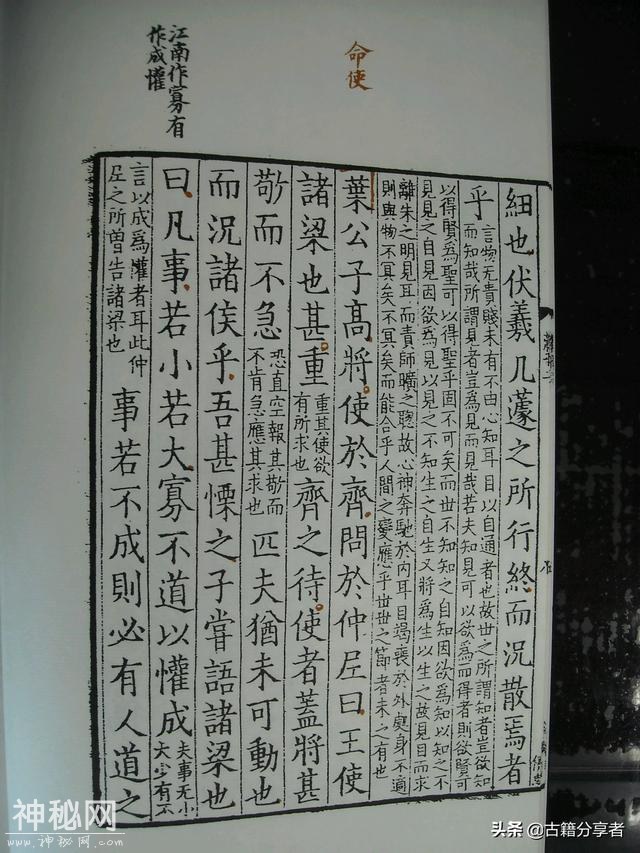 命使
江南作寡有
作成懽
細也伏羲几蘧之所行終而況散焉者
乎
言物无貴賤未有不由心知耳目以自通者也故世之所謂知者豈欲知
而知哉所謂見者豈爲見而見哉若夫知見可以欲爲而得者則欲賢可
以得賢爲聖可以得聖乎固不可矣而世不知知之自知因欲爲知以知之不
見見之自見因欲爲見以見之不知生之自生又將爲生以生之故見目而求
離朱之明見耳而責師曠之聰故心神奔馳於内耳目竭喪於外處身不適
則與物不冥矣不冥矣而能合乎人間之變應乎世世之節者未之有也
葉公子髙將使於齊問於仲尼曰王使
諸梁也甚重
重其使欲
有所求也
齊之待使者蓋將甚
敬而不急
恐直空報其敬而
不肯急應其求也
匹夫猶未可動也
而況諸侯乎吾甚慄之子嘗語諸梁也
曰凡事若小若大寡不道以懽成
夫事无小
大少有不
言以成爲懽者耳此仲
尼之所曽告諸梁也
事若不成則必有人道之
神秘网
www.shenmiw.com
头条 @古籍分享者